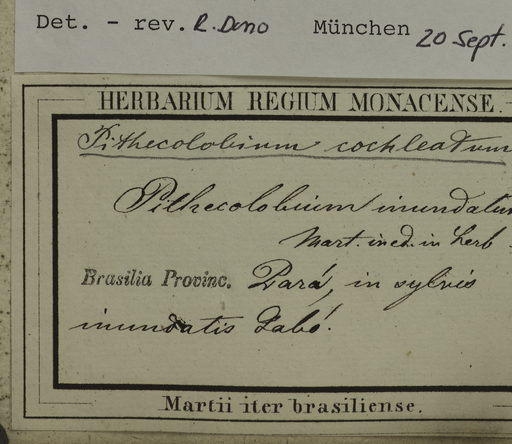 Det. - rev. R. Dno München 20 Sept.
HERBARIUM REGIUM MONACENSE.
Pithecolobium cochleatum
Pithecolobium inundatum
Mart. ined. in herb.
Brasilia Provinc. Pará, in sylvis
inundatis Tabó.
Martii iter brasiliense.